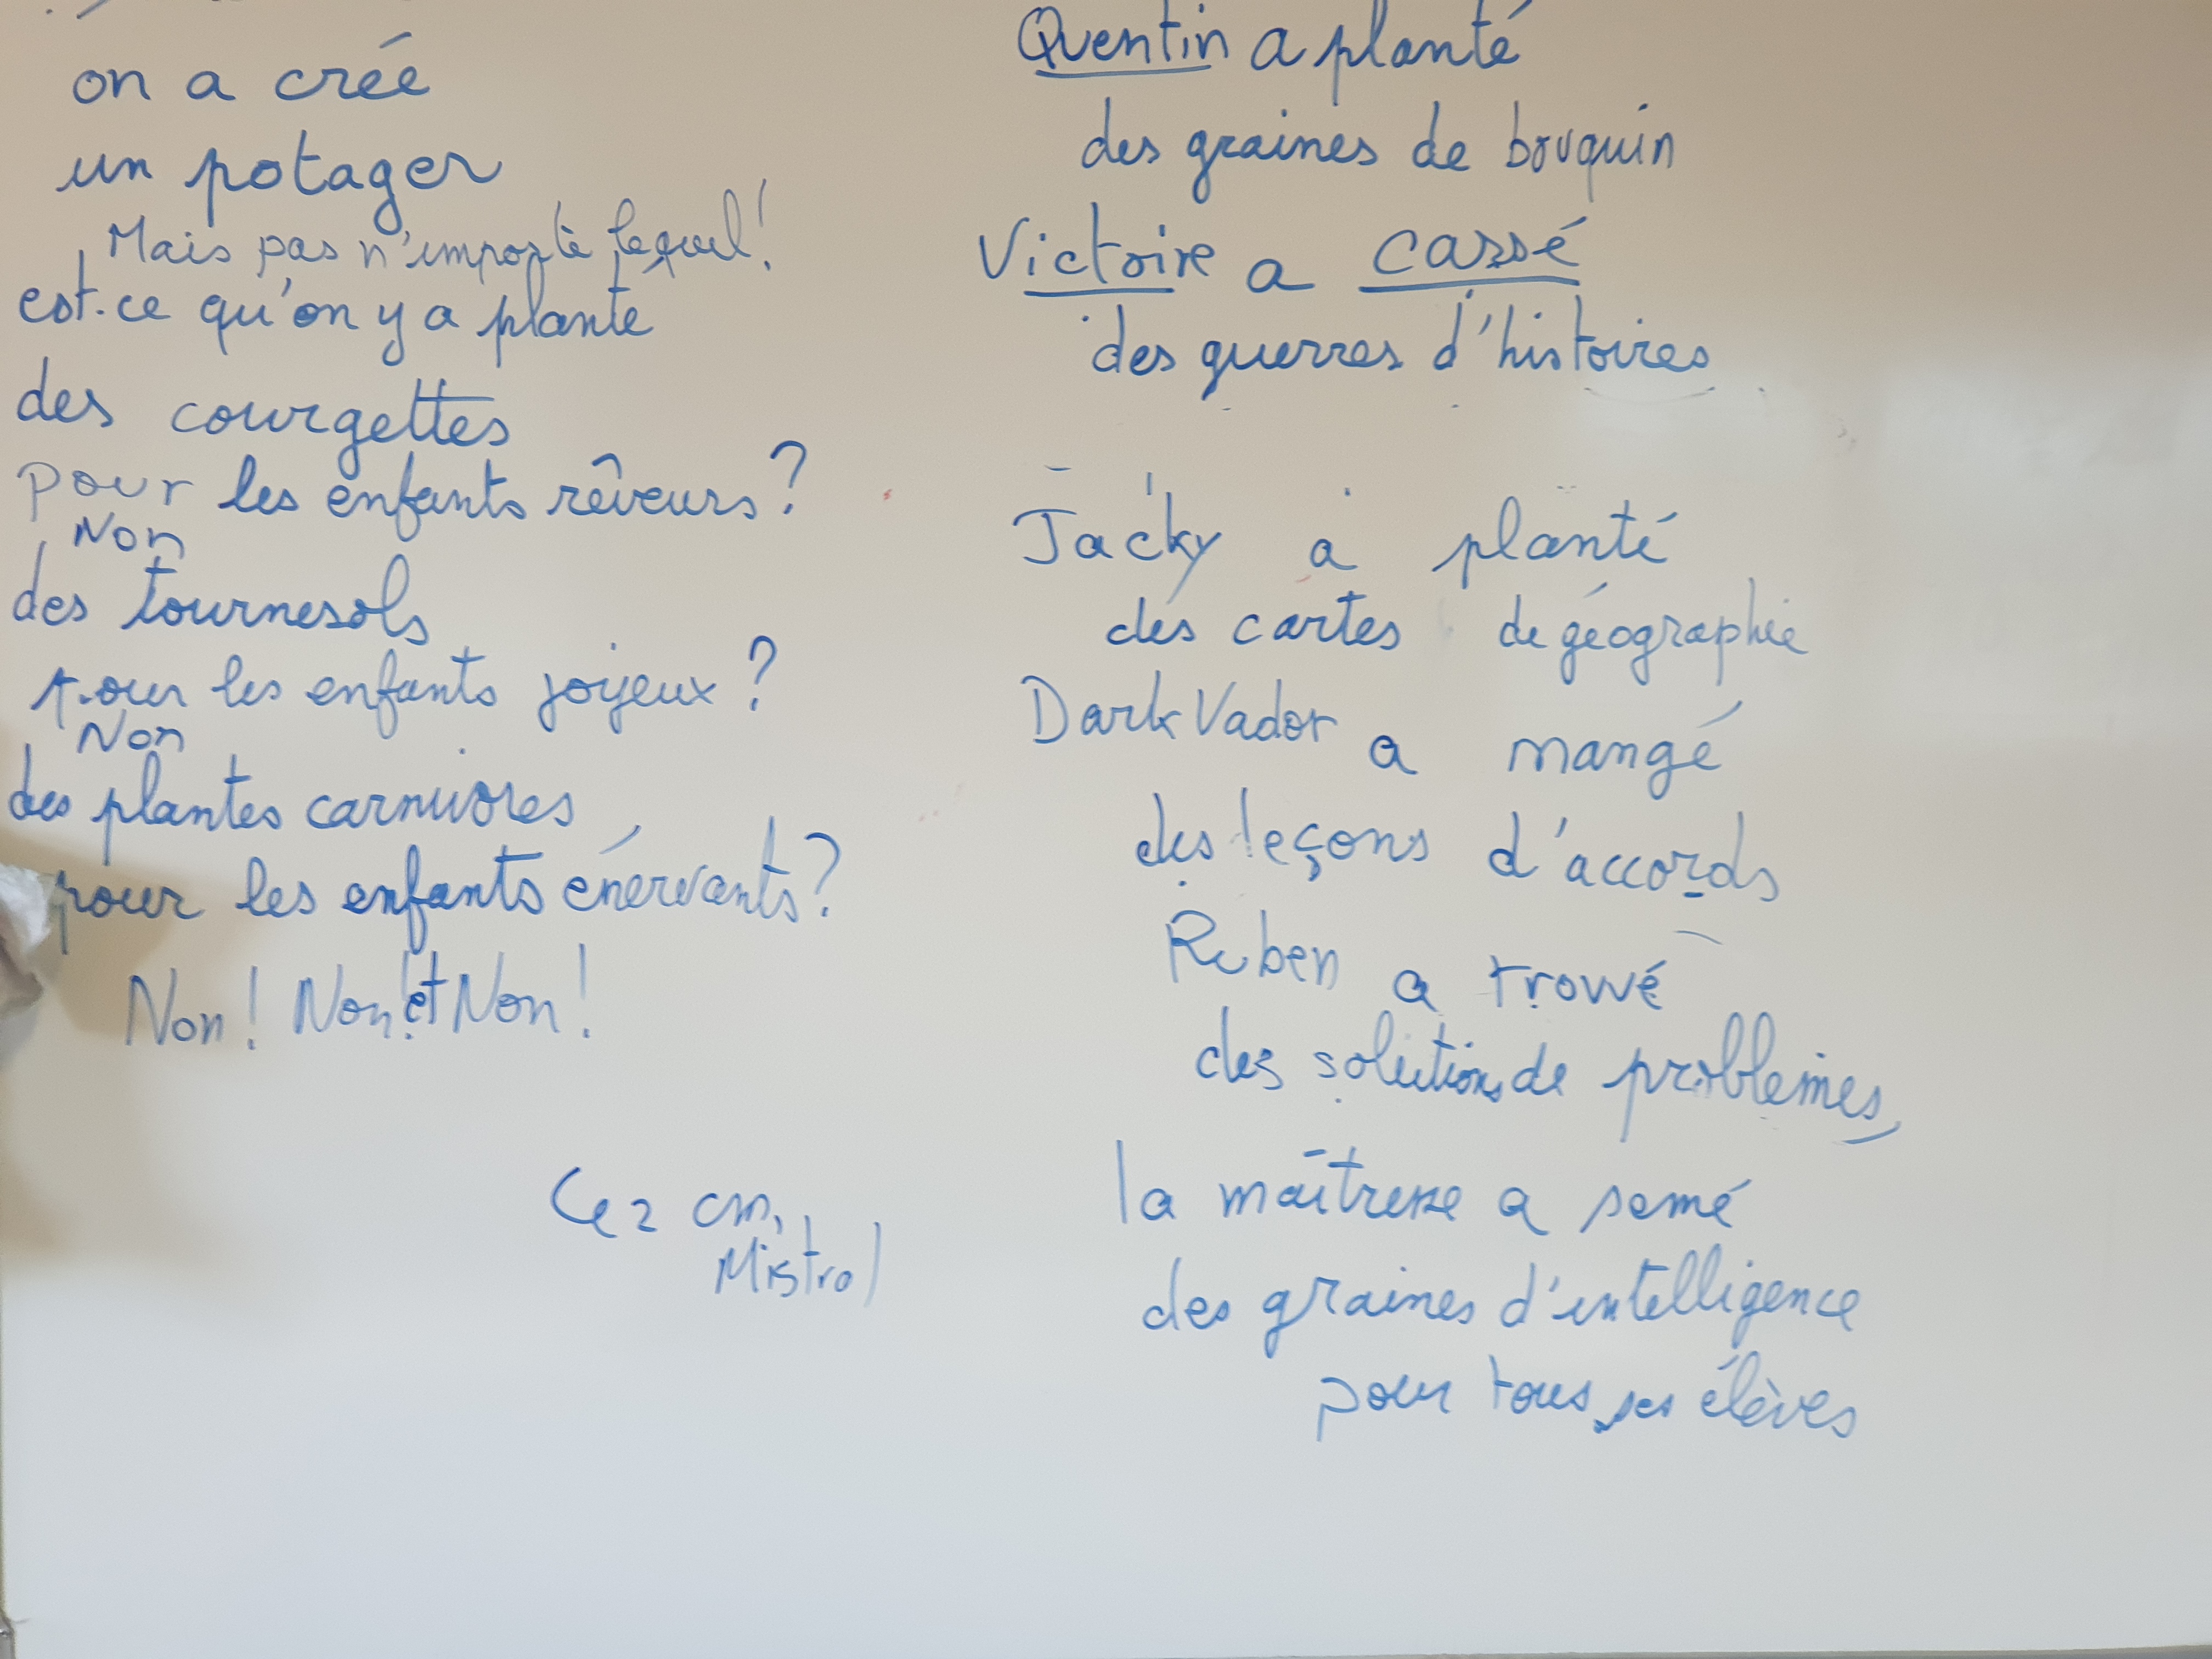 on a créé
un potager
Mais pas n'importe lequel!
est-ce qu'on y a planté
des courgettes
pour les enfants rêveurs?
Non
des tournesols
pour les enfants joyeux?
Non
des plantes carnivores
pour les enfants énervants?
Non! Non! et Non!
Ce2 cm1
Mistral
Quentin a planté
des graines de bouquin
Victoire a cassé
des guerres d'histoires
Jacky a planté
des cartes de géographie
Dark Vador a mangé
des leçons d'accords
Ruben a trouvé
des solutions de problèmes,
la maîtresse a semé
des graines d'intelligence
pour tous ses élèves